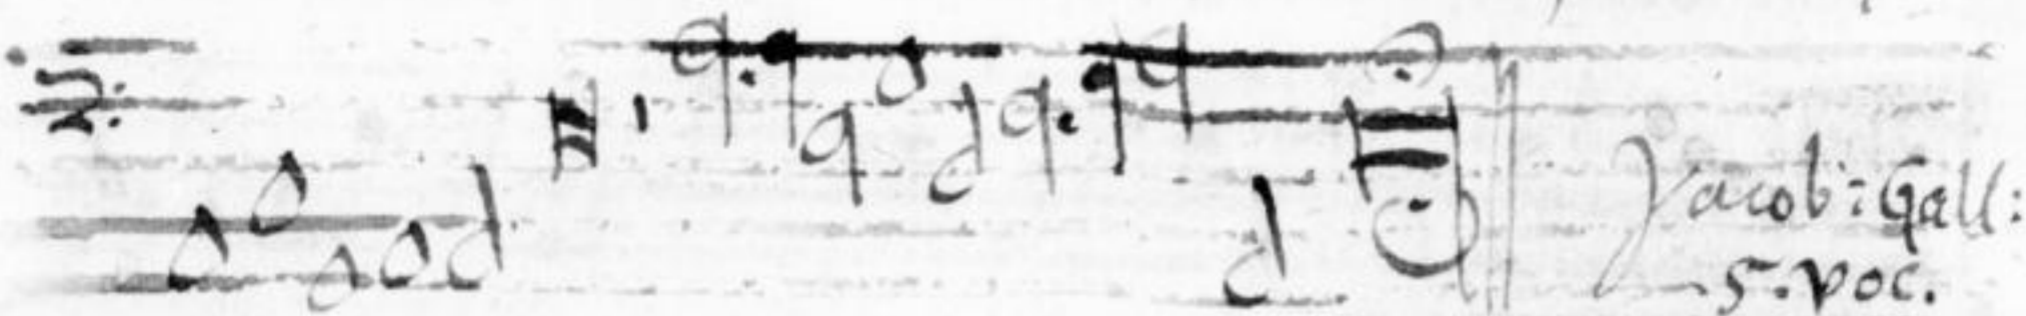 Jacob: Gall:
5. voc.